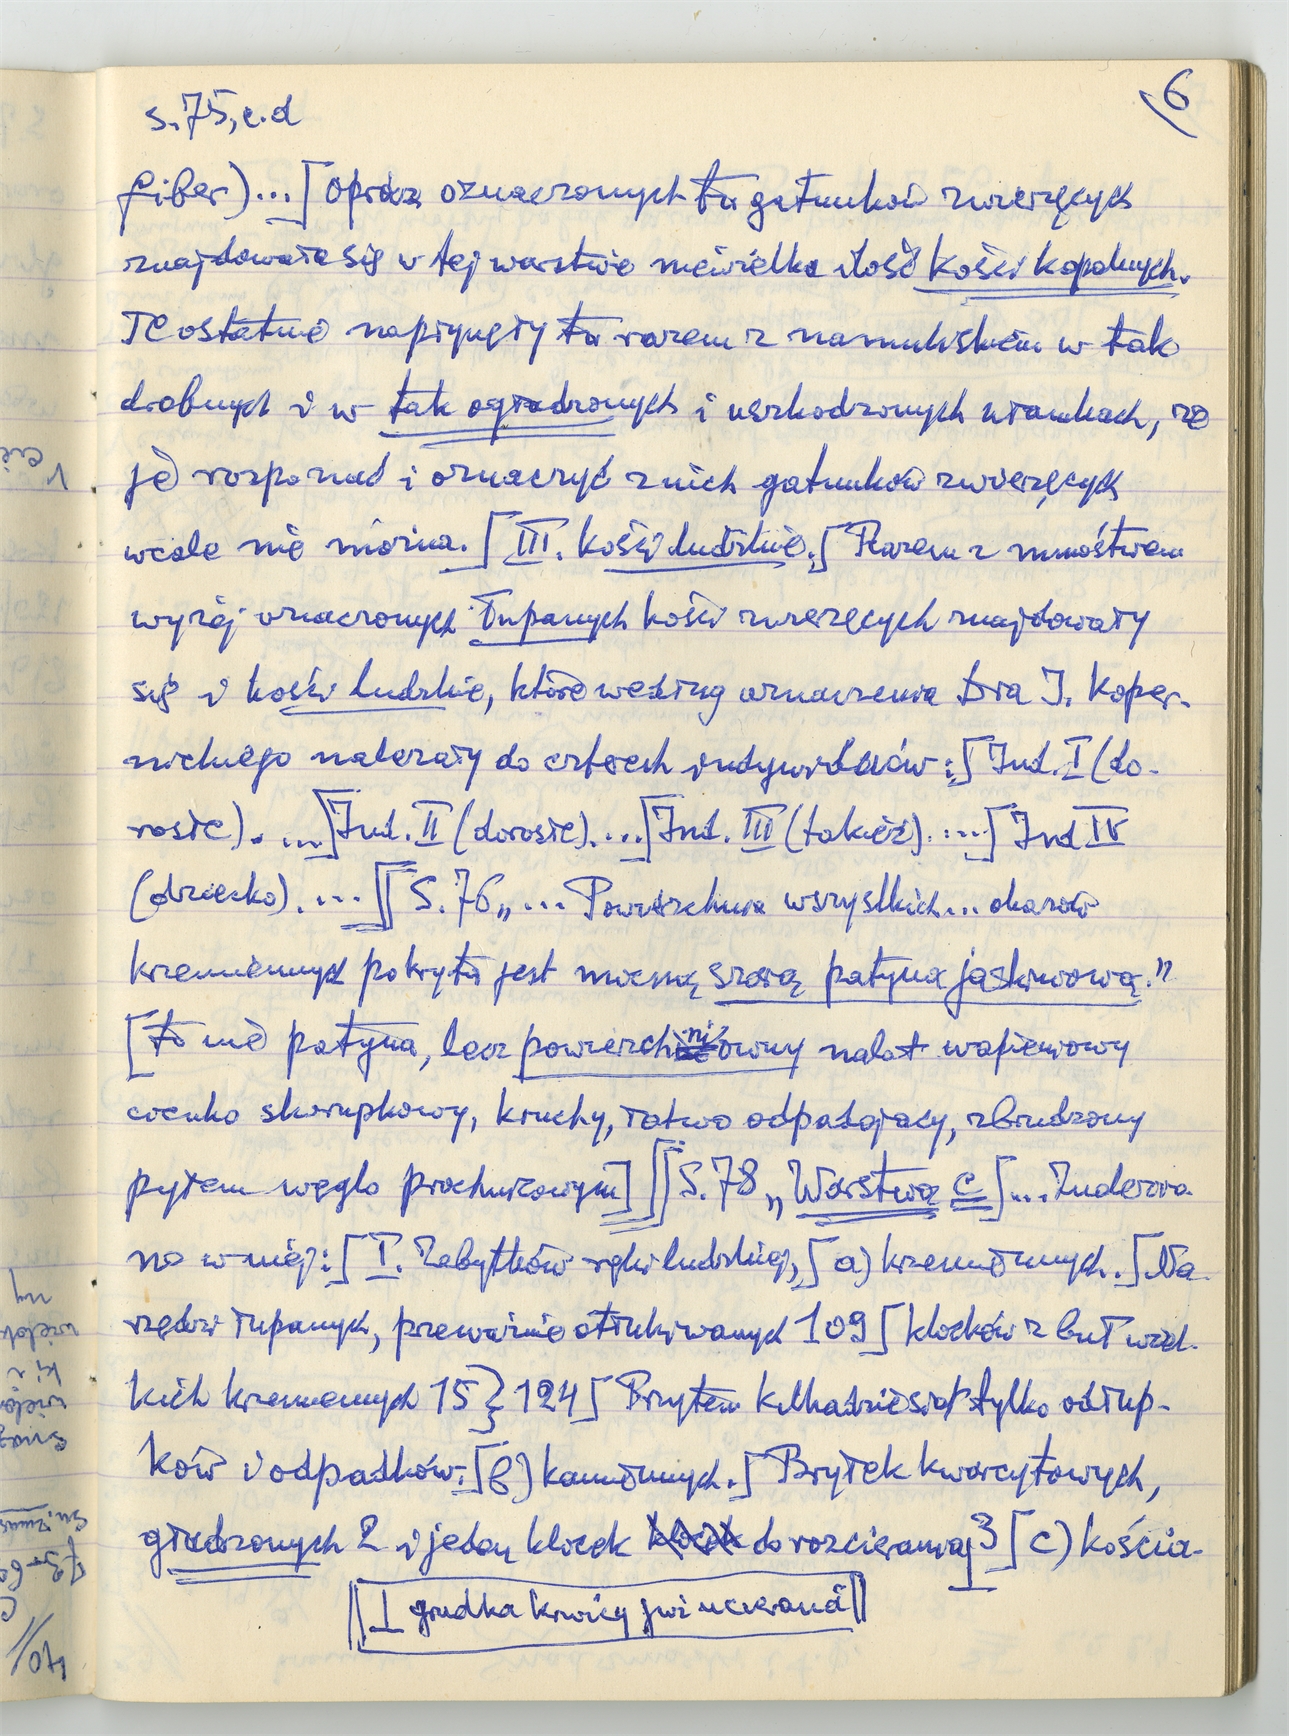 6
s.75, c.d
fiber)...[ Oprócz oznaczonych tu gatunków zwierzęcych
znajdowała się w tej warstwie niewielka ilość kości kopalnych.
Te ostatnie napłynęły tu razem z namuliskiem w tak
drobnych i w tak ogładzonych i uszkodzonych ułamkach, że
je rozpoznać i oznaczyć z nich gatunków zwierzęcych
wcale nie można. [ III. kości ludzkie.[ Razem z mnóstwem
wyżej oznaczonych łupanych kości zwierzęcych znajdowały
się i kości ludzkie, które według oznaczenia Dra I. Koper-
nickiego należały do czterech indywiduów:[ Ind. I (do-
rosłe). ...[Ind. II (dorosłe)....[Ind. III (takież). ...[ Ind IV
(dziecko). ...[[ S. 76 „... Powierzchnia wszystkich... okazów
krzemiennych pokryta jest mocną szarą patyną jaskiniową."
[to nie patyna, lecz powierzchniówny nalot wapieniowy
cocuko skorupkowy, kruchy, łatwo odpadający, zbrudzony
pyłem węglo próchnicowym] [[S. 78 „Warstwa c[... Znalezio-
no w niej:[ I. Zabytków ręki ludzkiej,[ a) krzemiennych.[Na-
rzędzi łupanych, przeważnie otłukiwanych 109[ klocków z buł wiel-
kich krzemiennych 15} 124[ Przytem kilkadziesiąt tylko odłup-
ków i odpadków:[b) kamiennych.[ Bryłek kwarcytowych,
gładzonych 2 i jeden klocek do rozcierania] 3[ c) kościa-
|| I grudka krwicy już ucierana ||